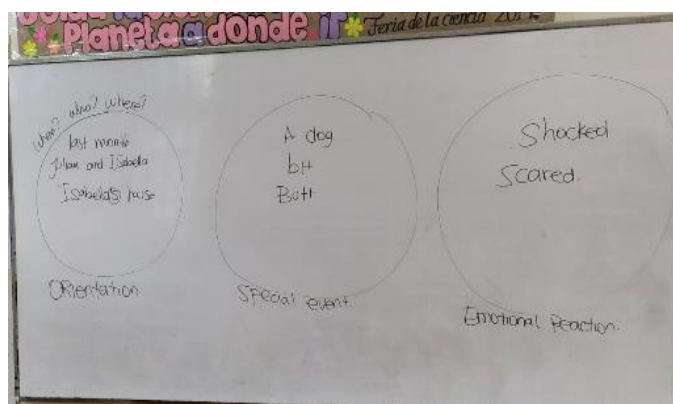 Planeta a donde ir Feria de la ciencia
When? who? where?
last month
Julian and Isabella
Isabella's house
Orientation
A dog
bit
Butt
Special event
Shocked
Scared.
Emotional Reaction.